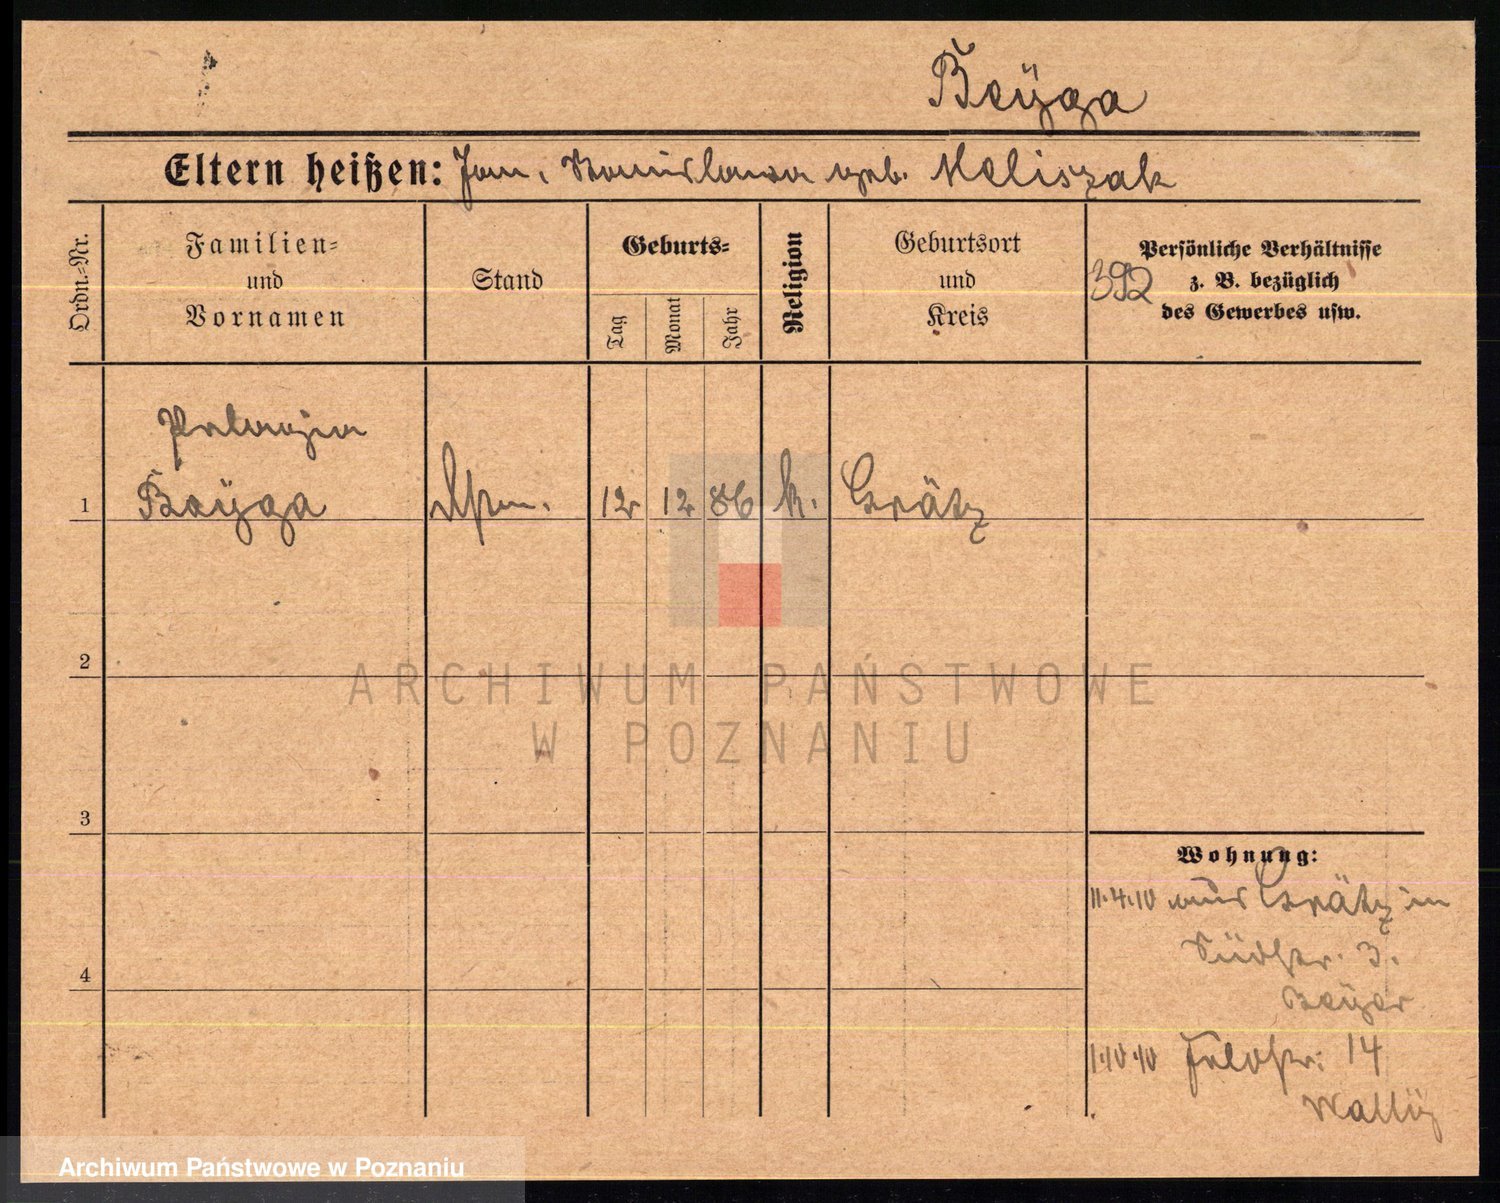 Beÿga
Eltern heißen: Jan, Stanislawa geb. Maliszak
Ordn.=Nr.
Familien=
und
Vornamen
Stand
Geburts=
Tag
Monat
Jahr
Religion
Geburtsort
und
Kreis
392
Persönliche Verhältnisse
z. B. bezüglich
des Gewerbes usw.
Pelagia
1 Beÿga 12 12 86 k. Grätz
2
ARCHIWUM PAŃSTWOWE
W POZNANIU
3
Wohnung:
11.4.10 aus Grätz in
Südstr. 3.
Beÿer
4
1.10.10 Feldstr. 14
Archiwum Państwowe w Poznaniu